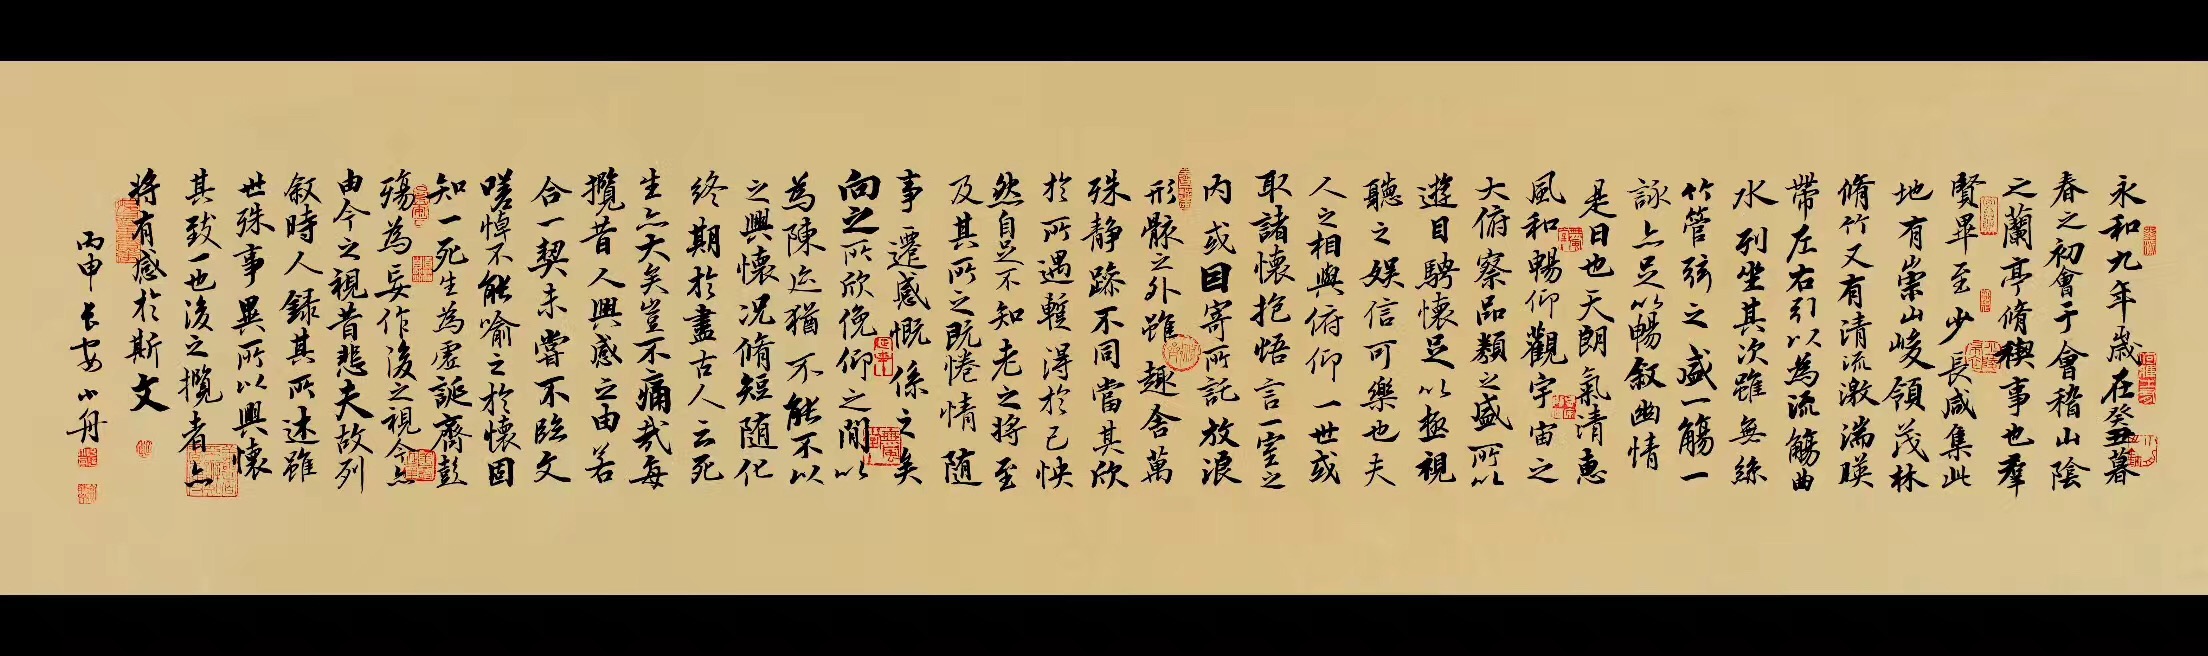 永和九年歲在癸丑暮
春之初會于會稽山陰
之蘭亭脩稧事也羣
賢畢至少長咸集此
地有崇山峻領茂林
脩竹又有清流激湍暎
帶左右引以為流觴曲
水列坐其次雖無絲
竹管弦之盛一觴一
詠亦足以暢叙幽情
是日也天朗氣清惠
風和暢仰觀宇宙之
大俯察品類之盛所以
遊目騁懷足以極視
聽之娛信可樂也夫
人之相與俯仰一世或
取諸懷抱悟言一室之
內或因寄所託放浪
形骸之外雖趣舍萬
殊靜躁不同當其欣
於所遇蹔得於己怏
然自足不知老之將至
及其所之既惓情随
事遷感慨係之矣
向之所欣俛仰之間以
為陳迹猶不能不以
之興懷况脩短随化
終期於盡古人云死
生亦大矣豈不痛哉每
攬昔人興感之由若
合一契未嘗不臨文
嗟悼不能喻之於懷固
知一死生為虛誕齊彭
殤為妄作後之視今亦
由今之視昔悲夫故列
叙時人錄其所述雖
世殊事異所以興懷
其致一也後之攬者亦
將有感於斯文
丙申長安小舟